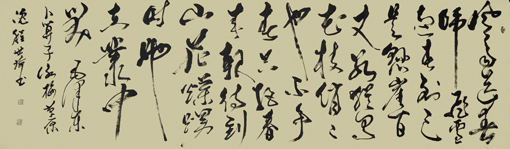 风雨送春
归飞雪
迎春到已
是悬崖百
丈冰犹有
花枝俏〻
也不争
春只把春
来报待到
山花烂漫
时她
在丛中
笑 毛泽东
卜算子咏梅
书